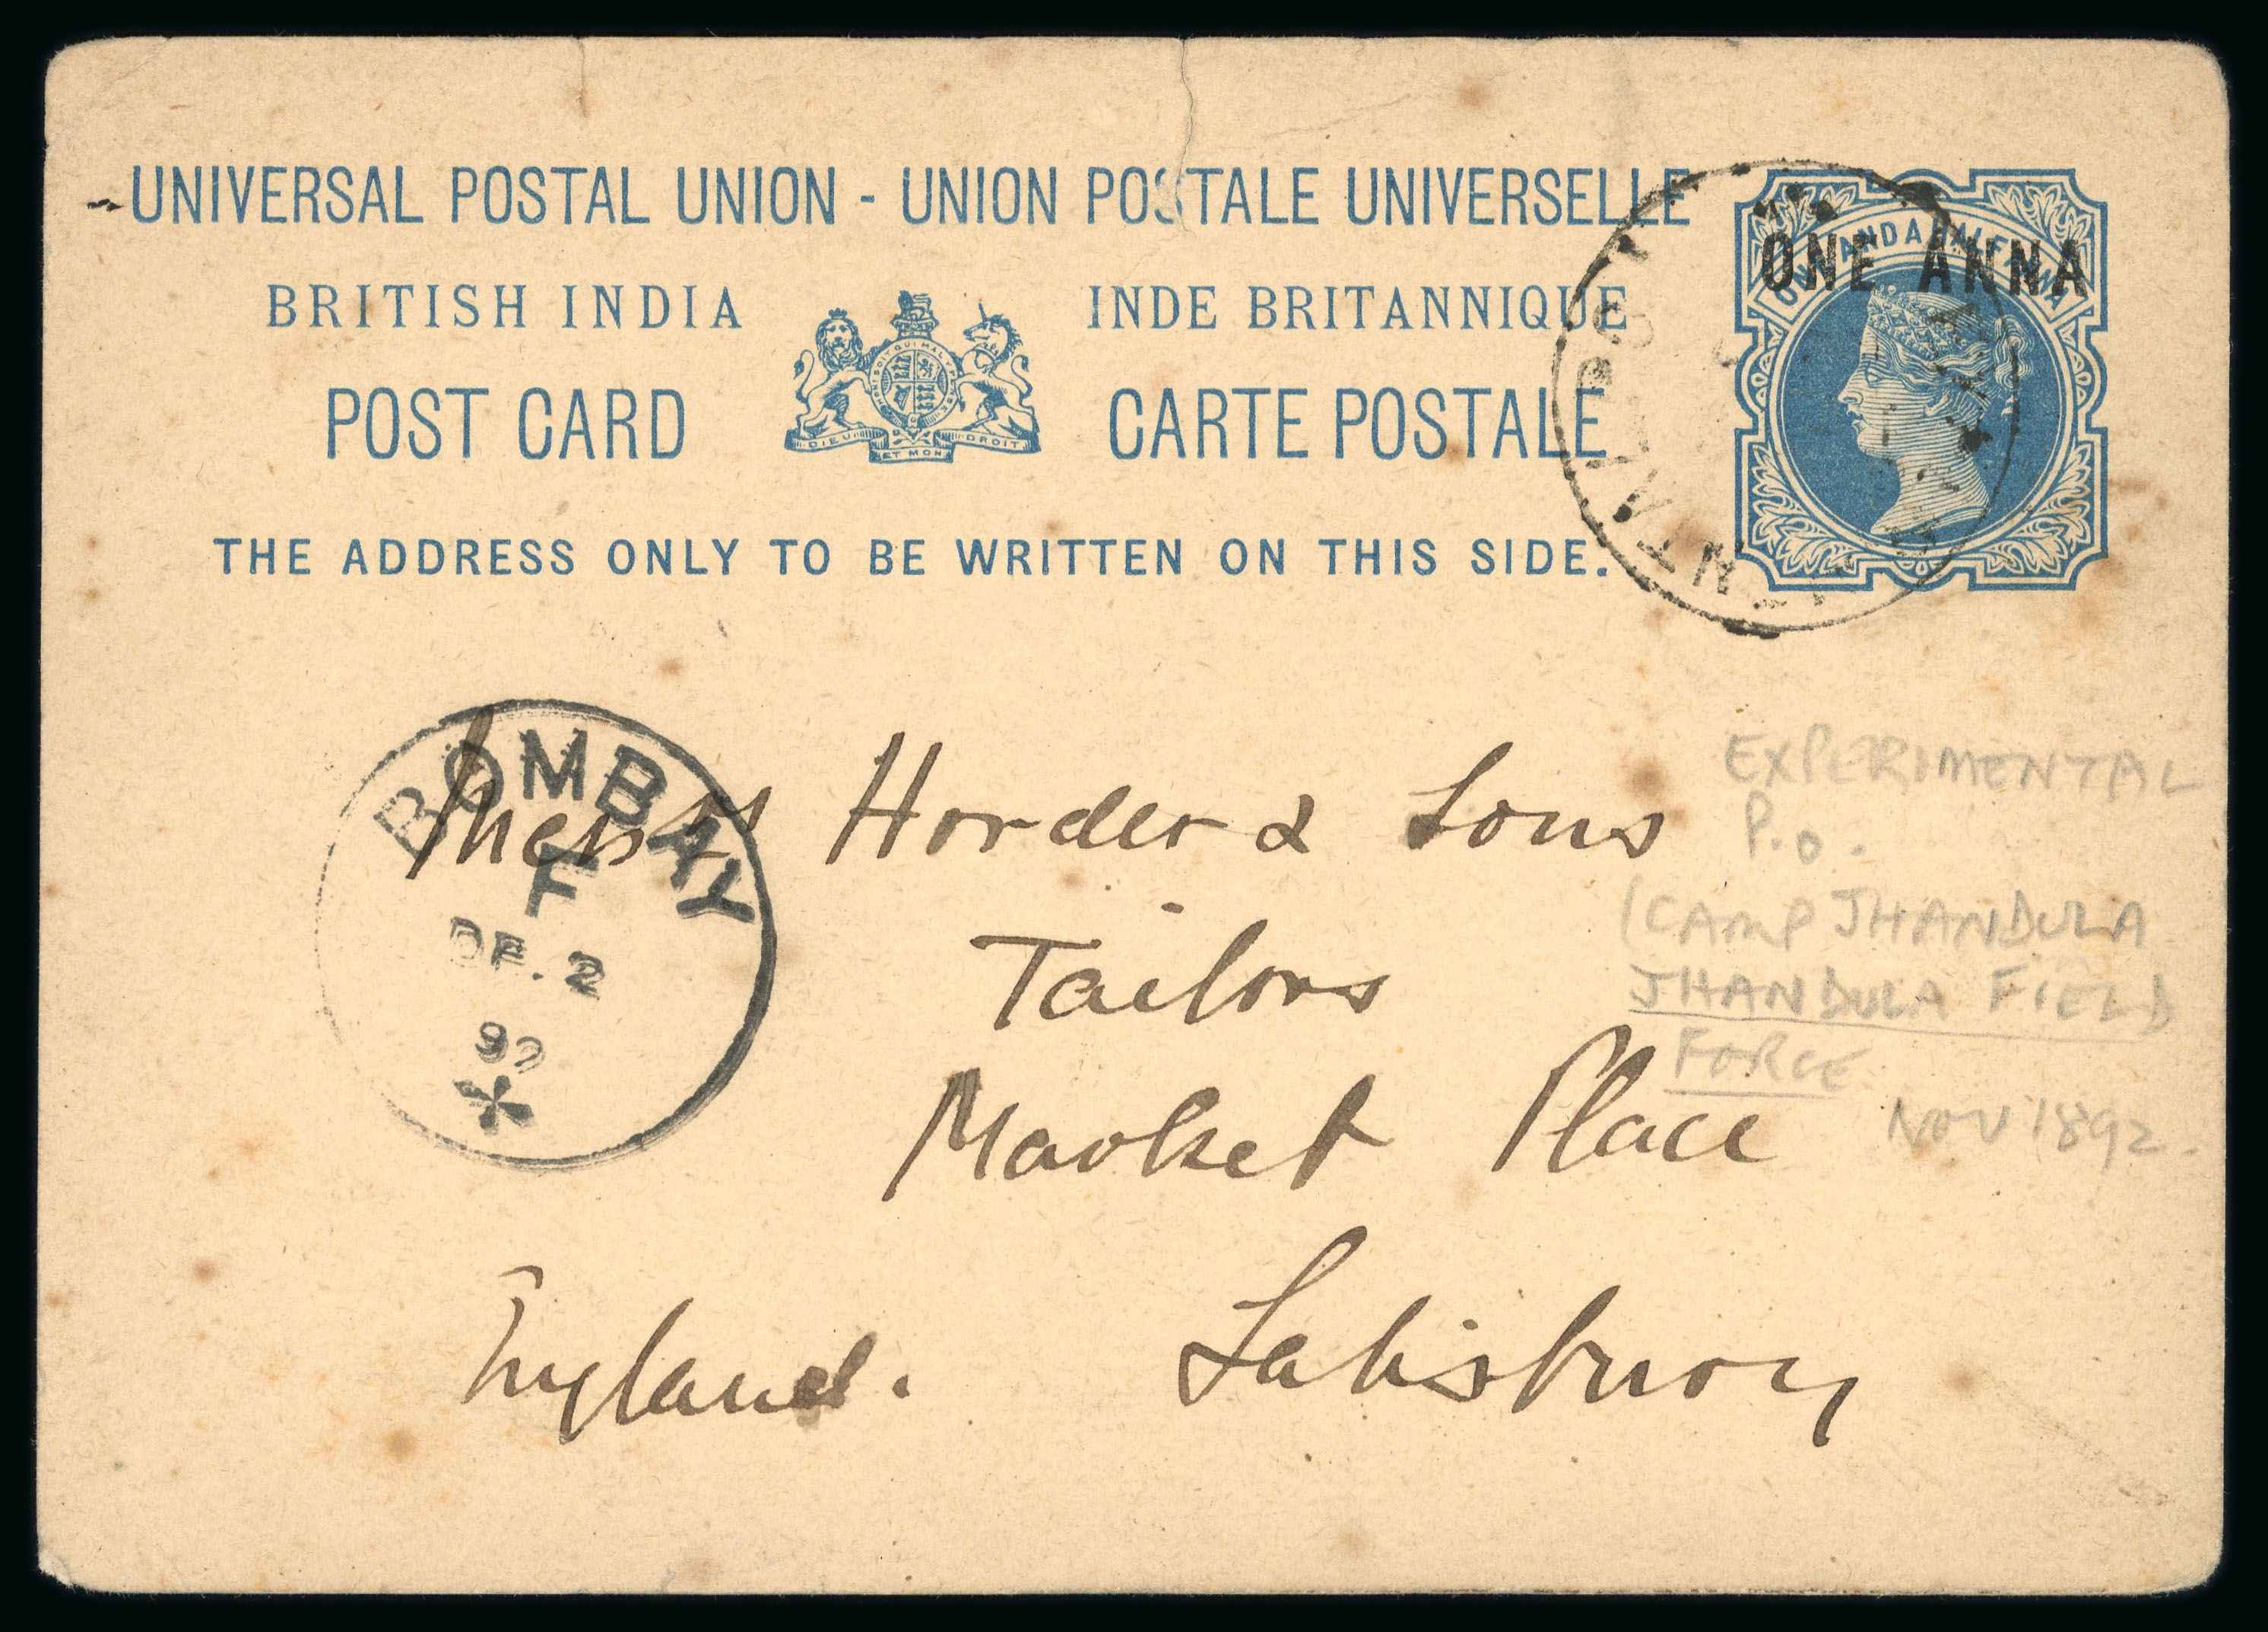 UNIVERSAL POSTAL UNION - UNION POSTALE UNIVERSELLE
BRITISH INDIA INDE BRITANNIQUE
POST CARD CARTE POSTALE
DIEU ET MON DROIT
THE ADDRESS ONLY TO BE WRITTEN ON THIS SIDE.
ONE ANNA
BOMBAY
F
DE. 2
92
Messrs Horder & Sons
Tailors
Market Place
Salisbury
England.
EXPERIMENTAL
P.O.
(CAMP JHANDULA
JHANDULA FIELD
FORCE
NOV 1892.